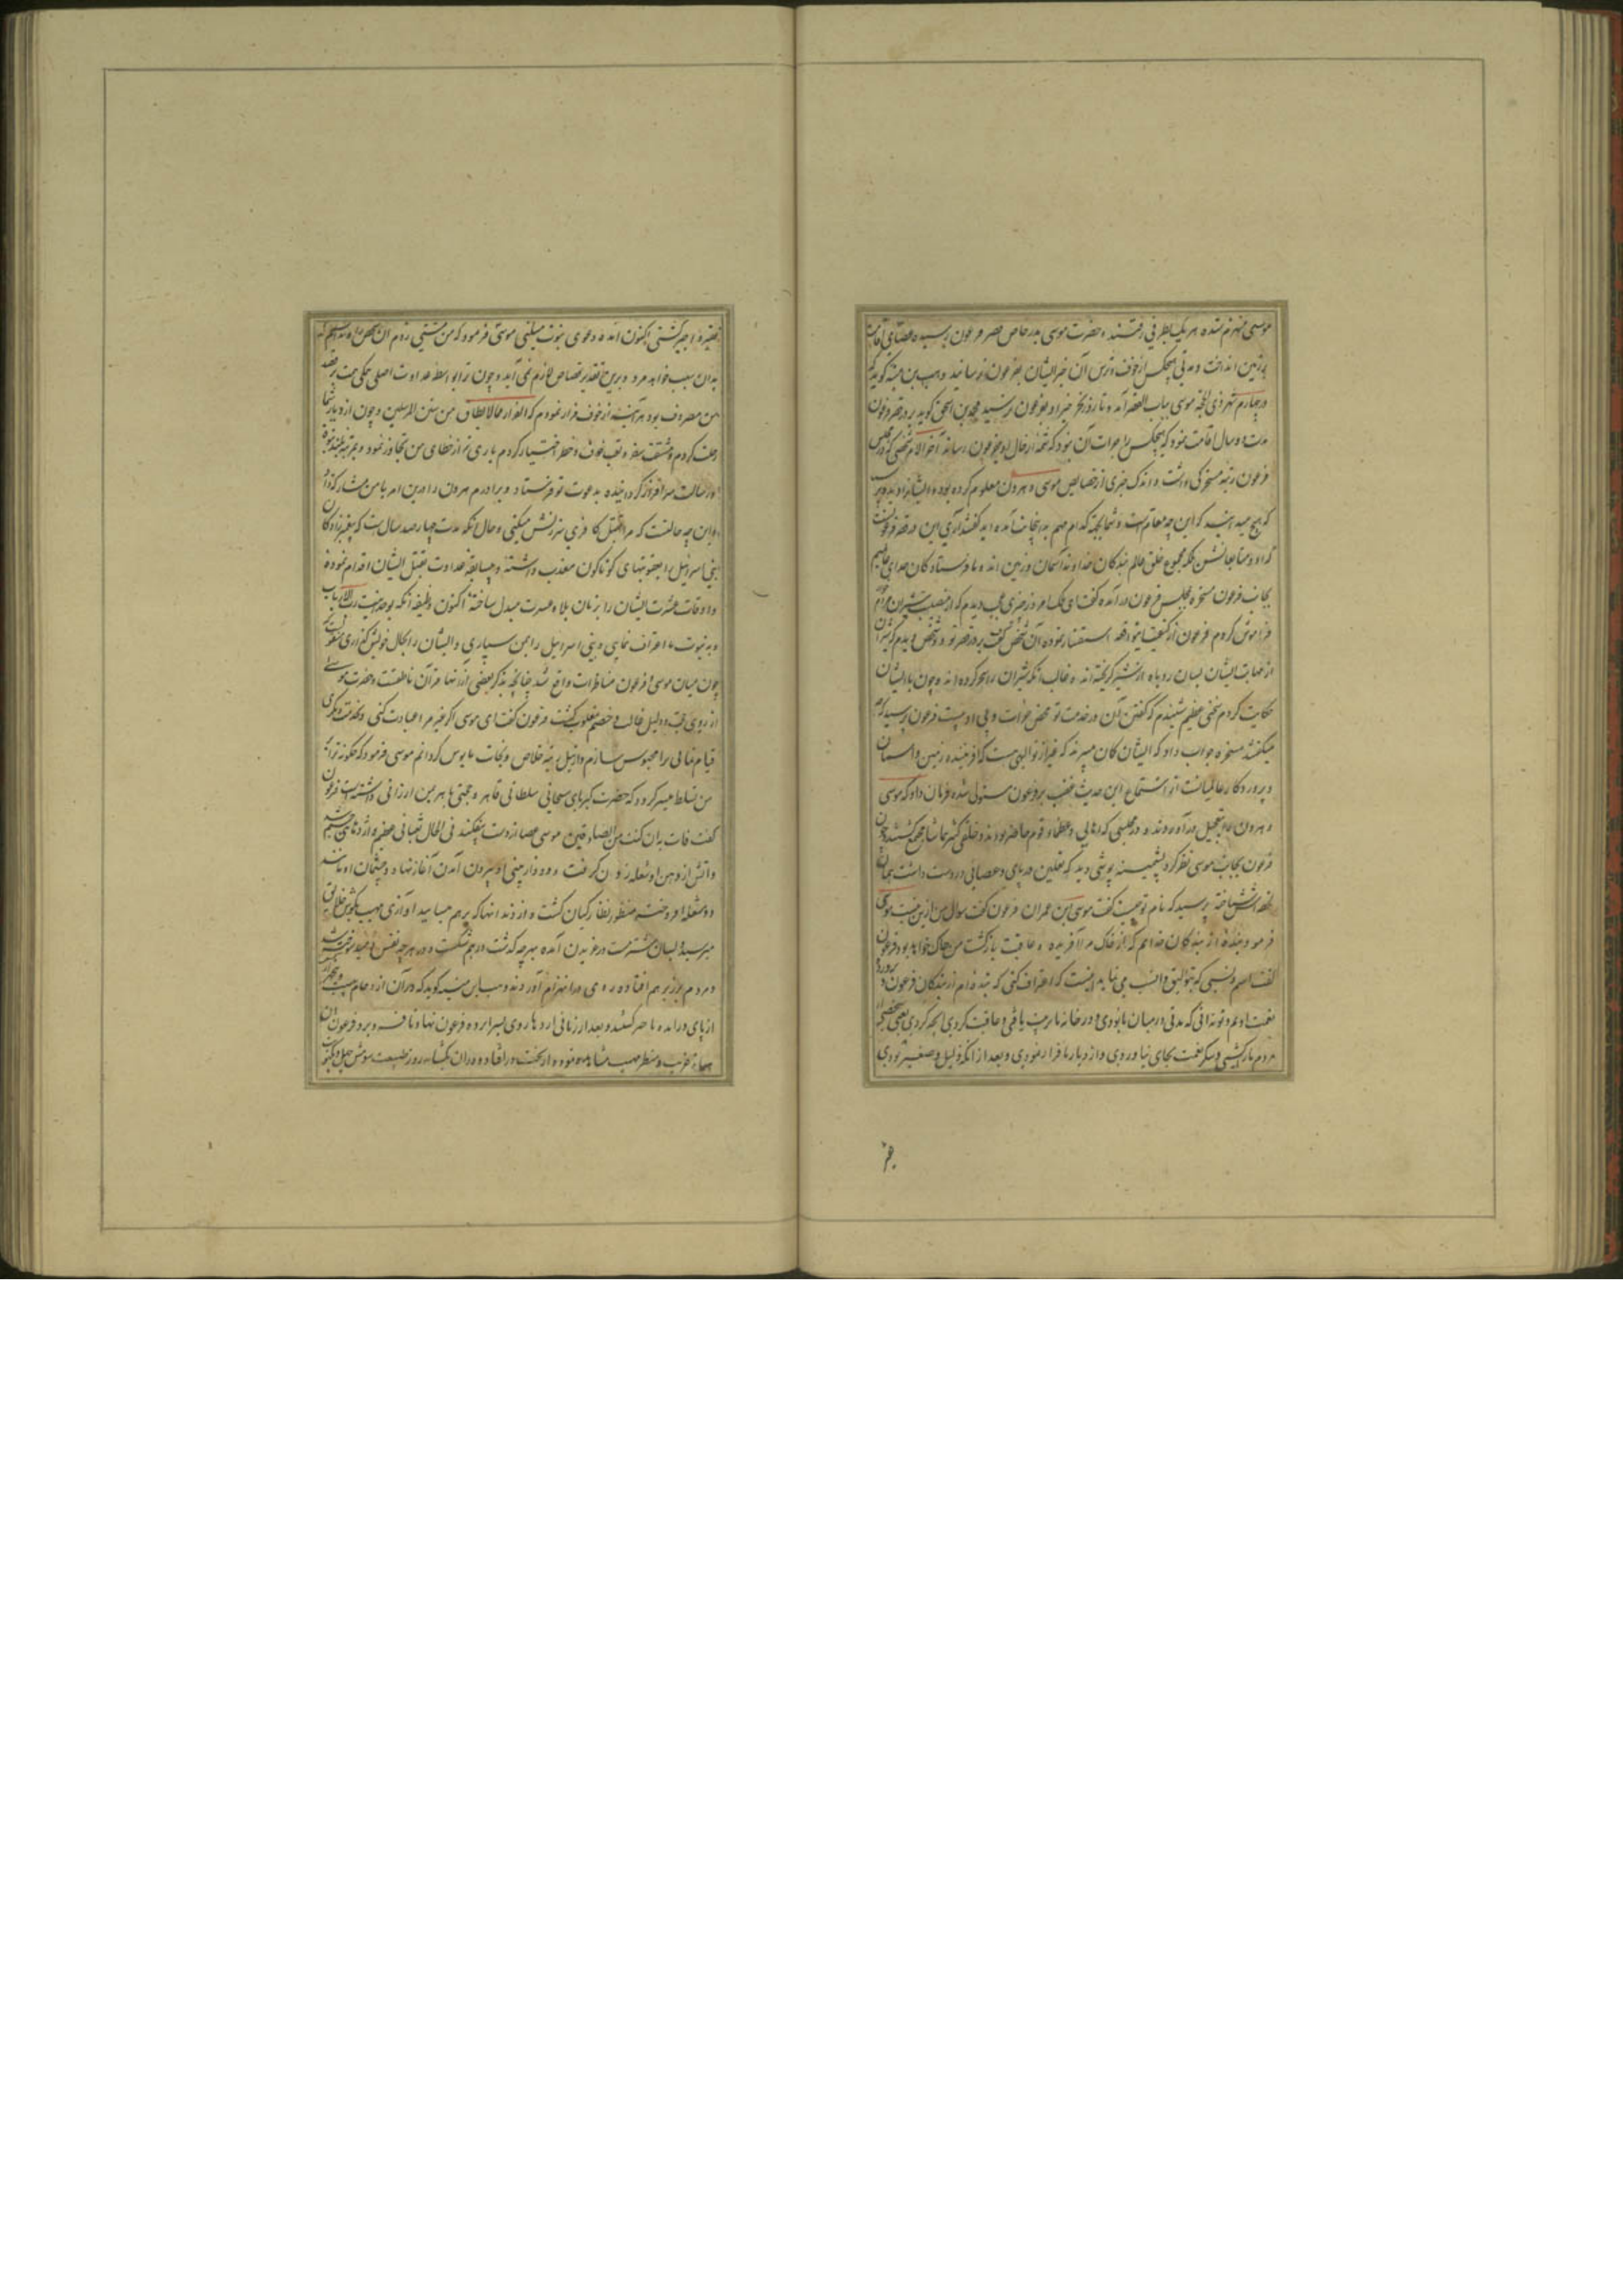 موسی منهزم شده هر یک بطرفی رفتند و حضرت موسی بدر خاص قصر فرعون رسیده عصای اقامت
بر زمین انداخت و مدتی هیچکس از خوف و ترس آن خبر ایشان بفرعون نرسانید وهب بن منبه گوید که
در چهارم شهر ذی الحجه موسی بباب القصر آمد و تا روز نحر خبر او بفرعون نرسید محمد بن اسحق گوید بر در قصر فرعون
مدت دو سال اقامت نمود که هیچکس را جرات آن نبود که شمه از حال او بفرعون رساند آخر الامر شخصی که در مجلس
فرعون رتبه مسخرگی داشت و اندک خبری از خصایص موسی و هرون معلوم کرده بوده ایشانرا دیده پرسید
که هیچ میدانید که این چه مقام است و شما بجهة کدام مهم بدینجانب آمده اید گفتند آری این در قصر فرعونست
که او و متابعانش بلکه مجموع خلق عالم بندگان خداوند آسمان و زمین اند و ما فرستادگان خدای عالمیم
بجانب فرعون مسخره بمجلس فرعون در آمده گفت ای ملک امروز چیزی عجب دیدم که از مهابت شیران
فراموش کردم فرعون از کیفیت واقعه استفسار نموده آن شخص گفت بر در قصر تو دو شخص دیدم که شیران
از مهابت ایشان بسان روباه از شیر گریخته اند و غالب آنکه شیران را سحر کرده اند و چون با ایشان
حکایت کردم سخنی عظیم شنیدم که گفتن آن در خدمت تو محض جرات و بی ادبیست فرعون پرسید که چه
میگفتند مسخره جواب داد که ایشان گمان میبرند که غیر از تو الهی هست که آفریننده زمین و آسمان
و پروردگار عالمیانست از استماع این حدیث غضب بر فرعون مستولی شده فرمان داد که موسی
و هرون را بتعجیل در آوردند و در مجلسی که اهالی و عظماء قوم حاضر بودند و خلقی کثیر بتماشا مجتمع گشتند چون
فرعون بجانب موسی نظر کرد پشمینه پوشی دید که نعلین در پای و عصائی در دست داشت بجای
شناخته پرسید که نام تو چیست گفت موسی ابن عمران فرعون گفت سوال من ازین نیست موسی
فرمود بنده از بندگان خدایم که از خاک مرا آفریده و عاقبت بازگشت من بخاک خواهد بود فرعون
گفت اسم و نسبی که بتو الیق و انسب می نماید اینست که اعتراف کنی که بنده ام از بندگان فرعون و پرورده
نعمت اویم و تو نه آنی که مدتی در میان ما بودی و در خانه ما تربیت یافتی و عاقبت کردی آنچه کردی یعنی شخصی از
مردم ما را کشتی و شکر نعمت بجای نیاوردی و از دیار ما فرار نمودی و بعد از آنکه ذلیل و صغیر بودی
فقیر و اجیر گشتی اکنون آمده دعوی نبوت میکنی موسی فرمود که من مشتی زدم آن شخص را و ندانستم که
بدان سبب خواهد مرد و برین تقدیر قصاص لازم نمی آید و چون ترا بواسطه عداوت اصلی همگی همت بر قصد
من مصروف بود هر آینه از خوف فرار نمودم که الفرار مما لا یطاق من سنن المرسلین و چون از دیار شما
رحلت کردم و مشقت سفر و تعب خوف و خطر اختیار کردم باری تعالی از خطای من تجاوز نمود و بمرتبه بلند نبوت
و رسالت سرافراز گردانیده بدعوت تو فرستاد و برادرم هرون را درین امر با من مشارک گردانید
و این چه حالتست که مرا بقتل کافری سرزنش میکنی و حال آنکه مدت چهارصد سال است که پیغمبر زادگان
بنی اسرائیل را بعقوبتهای گوناگون معذب داشته و بسابقه عداوت بقتل ایشان اقدام نموده
و اوقات عشرت ایشان را بزمان بلا و عسرت مبدل ساخته اکنون وظیفه آنکه بوحدانیت رب الارباب
و به نبوت ما اعتراف نمایی و بنی اسرائیل را بمن سپاری و ایشان را بحال خویش گذاری
چون میان موسی و فرعون مناظرات واقع شد چنانچه بذکر بعضی از آنها قرآن ناطقست و حضرت موسی
از روی حجت و دلیل غالب و خصم مغلوب گشت فرعون گفت ای موسی اگر غیر مرا عبادت کنی و بخدمت دیگری
قیام نمائی ترا محبوس سازم و از نیل مرتبه خلاص و نجات مایوس گردانم موسی فرمود که چگونه ترا بر
من تسلط میسر گردد که حضرت کبریای سبحانی سلطانی قاهر و حجتی باهر بمن ارزانی داشته است فرعون
گفت فات به ان کنت من الصادقین موسی عصا از دست بیفکند فی الحال ثعبانی عظیم و اژدهائی جسیم شد
و آتش از دهن او شعله زدن گرفت و دود از بینی او بیرون آمدن آغاز نهاد و چشمان او مانند
دو مشعله افروخته منظور نظارگیان گشت و از دندانها که بر هم میسایید آوازی مهیب بگوش خلایق
میرسید و بسان شتر مست در غریدن آمده بهر چه گذشت در هم شکست و بر هر چه نفس دمید سوخته شد
و مردم بر زبر هم افتاده روی در انهزام آوردند وهب بن منبه گوید که در آن ازدحام بیست و پنجهزار
از پای در آمده ناچیز گشتند و بعد از زمانی اژدها روی بسرا پرده فرعون نهاد و نافه و برد فرعون آن
غریب و منظر مهیب مشاهده نموده از تخت در افتاد و در آن یکشبانه روز